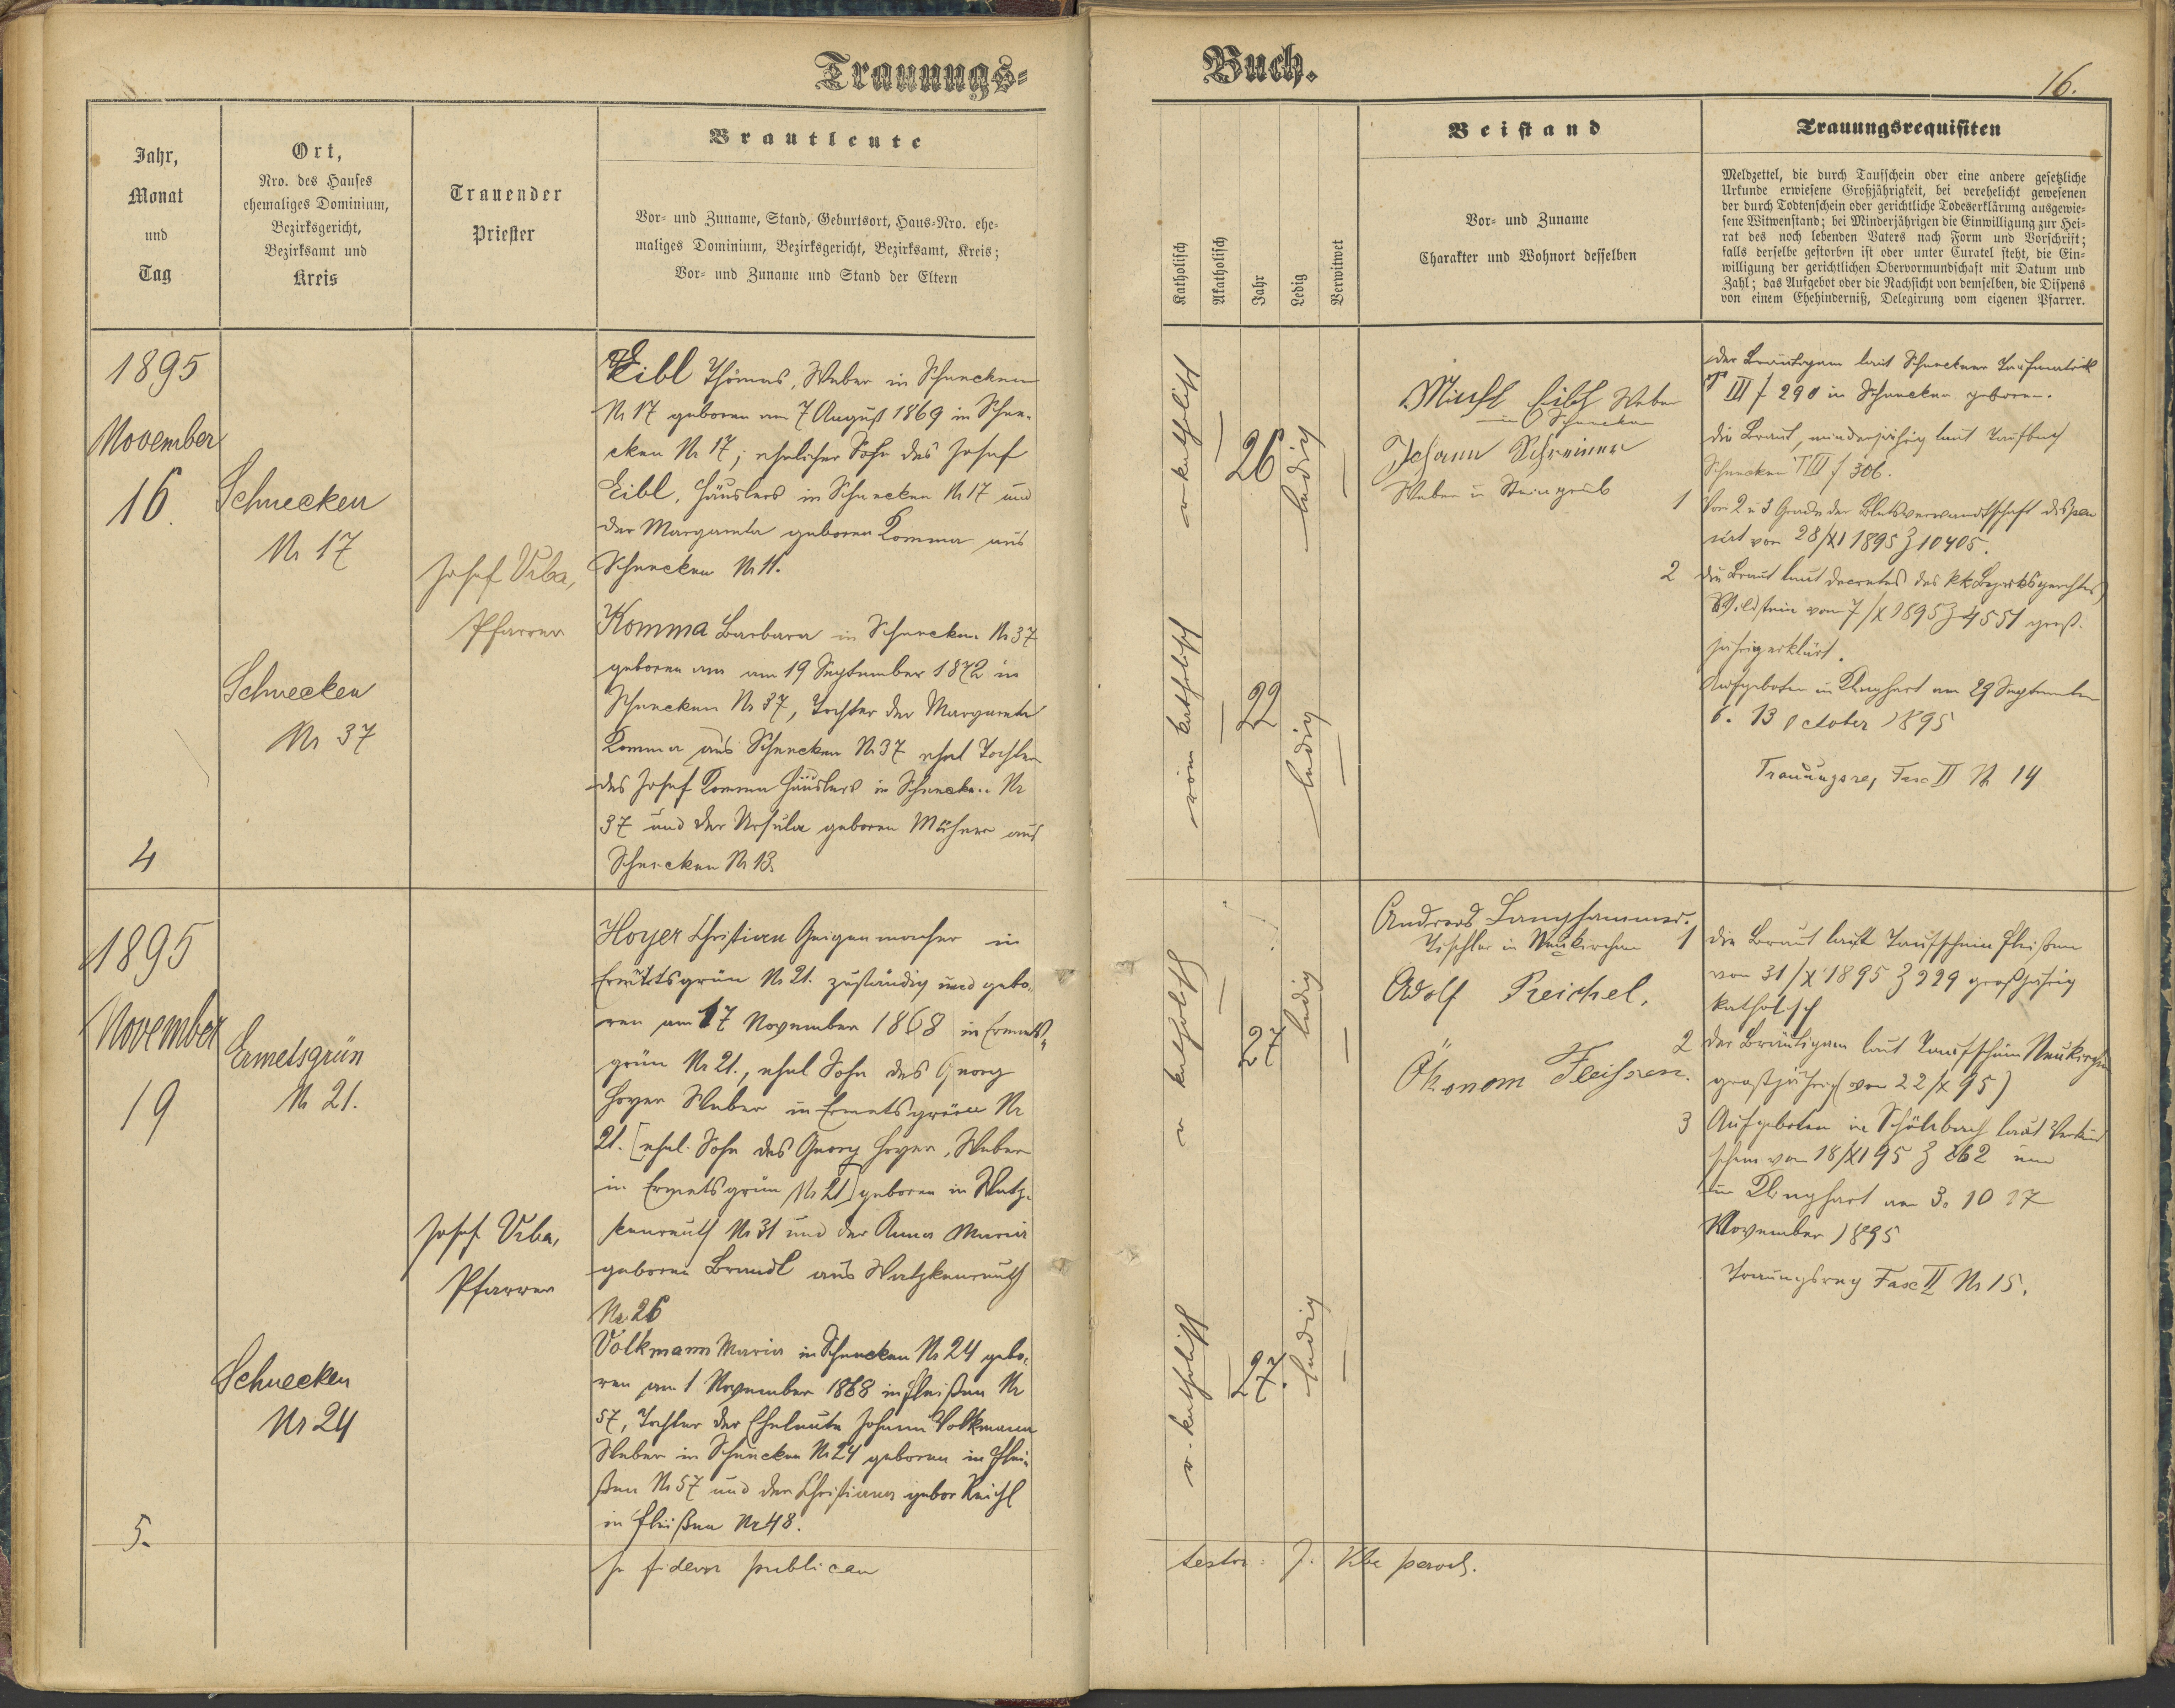 Trauungs-
Jahr,
Monat
und
Tag
Ort,
Nro. des Hauses
ehemaliges Dominium,
Bezirksgericht,
Bezirksamt und
Kreis
Trauender
Priester
Brautleute
Vor- und Zuname, Stand, Geburtsort, Haus-Nro. ehe-
maliges Dominium, Bezirksgericht, Bezirksamt, Kreis;
Vor- und Zuname und Stand der Eltern
1895
November
16.
4
Schnecken
Nr 17
Schnecken
Nr 37
Josef Urba,
Pfarrer
Eibl Thomas, Weber in Schnecken
Nr 17 geboren am 7 August 1869 in Schne-
cken Nr 17; ehelicher Sohn des Josef
Eibl, Häuslers in Schnecken Nr 17 und
der Margareta geboren Komma aus
Schnecken Nr 11.
Komma Barbara in Schnecken Nr 37
geboren am am 19 September 1872 in
Schnecken Nr 37, Tochter der Margareta
Komma aus Schnecken Nr 37 ehel Tochter
des Josef Komma Häuslers in Schnecken Nr
37 und der Ursula geboren aus
Schnecken Nr 13.
1895
November
19
5.
Ermetsgrün
Nr 21.
Schnecken
Nr 24
Josef Urba,
Pfarrer
Hoyer Christian Geigenmacher in
Ermetsgrün Nr 21. zuständig und gebo-
ren am 17 November 1868 in Ermets-
grün Nr 21., ehel Sohn des Georg
Hoyer Weber in Ermetsgrün Nr
21. [ehel. Sohn des Georg Hoyer, Weber
in Ermetsgrün Nr 21] geboren in Watz-
kenreuth Nr 31 und der Anna Maria
geboren Brandl aus Watzkenreuth
Nr. 26
Volkmann Maria in Schnecken Nr 24 gebo-
ren am 1 November 1868 in Fleißen Nr
57, Tochter der Eheleute Johann Volkmann
Weber in Schnecken Nr 24 geboren in Flei-
ßen Nr 57 und der Christiana gebor Reichl
in Fleißen Nr 48.
fidem publicam
Buch.
16.
Katholisch
Akatholisch
Jahr
Ledig
Verwitwet
Beistand
Vor- und Zuname
Charakter und Wohnort desselben
Trauungsrequisiten
Meldzettel, die durch Taufschein oder eine andere gesetzliche
Urkunde erwiesene Großjährigkeit, bei verehelicht gewesenen
der durch Todtenschein oder gerichtliche Todeserklärung ausgewie-
sene Witwenstand; bei Minderjährigen die Einwilligung zur Hei-
rat des noch lebenden Vaters nach Form und Vorschrift;
falls derselbe gestorben ist oder unter Curatel steht, die Ein-
willigung der gerichtlichen Obervormundschaft mit Datum und
Zahl; das Aufgebot oder die Nachsicht von demselben, die Dispens
von einem Ehehinderniß, Delegirung vom eigenen Pfarrer.
r katholisch
26
ledig
röm katholisch
22
ledig
Eibl Weber
in Schnecken
Johann Schreiner
Weber in Steingrub
der Bräutigam laut Schneckener Taufmatrik
T III f 290 in Schnecken geboren.
die Braut, minderjährig laut Taufbuch
Schnecken T III f 306.
1 Vom 2 u 3 Grade der Blutsverwandtschaft dispen
sirt vom 28/XI 1895 Z 10405.
2 die Braut laut Decretes des kk Bezirksgerichtes
Wildstein vom 7/X 1895 Z 4551 groß-
jährig erklärt.
Aufgeboten in Klinghart am 29 September
6. 13 October 1895
Trauungsreq Fasc II Nr 14
r katholisch
27
ledig
r. katholisch
27.
ledig
Andreas Langhammer.
Tischler in Neukirchen
Adolf Reichel.
Ökonom Fleissen.
1 die Braut laut Taufschein Fleißen
vom 31/X 1895 Z 229 großjährig
katholisch
2 der Bräutigam laut Taufschein Neukirchen
großjährig (vom 22/X 95)
3 Aufgeboten in Schönbach laut
schein vom 18/XI 95 Z 262 und
in Klinghart am 3. 10 17
November 1895
Trauungsreq Fasc II Nr 15.
testor: J. Urba paroch.